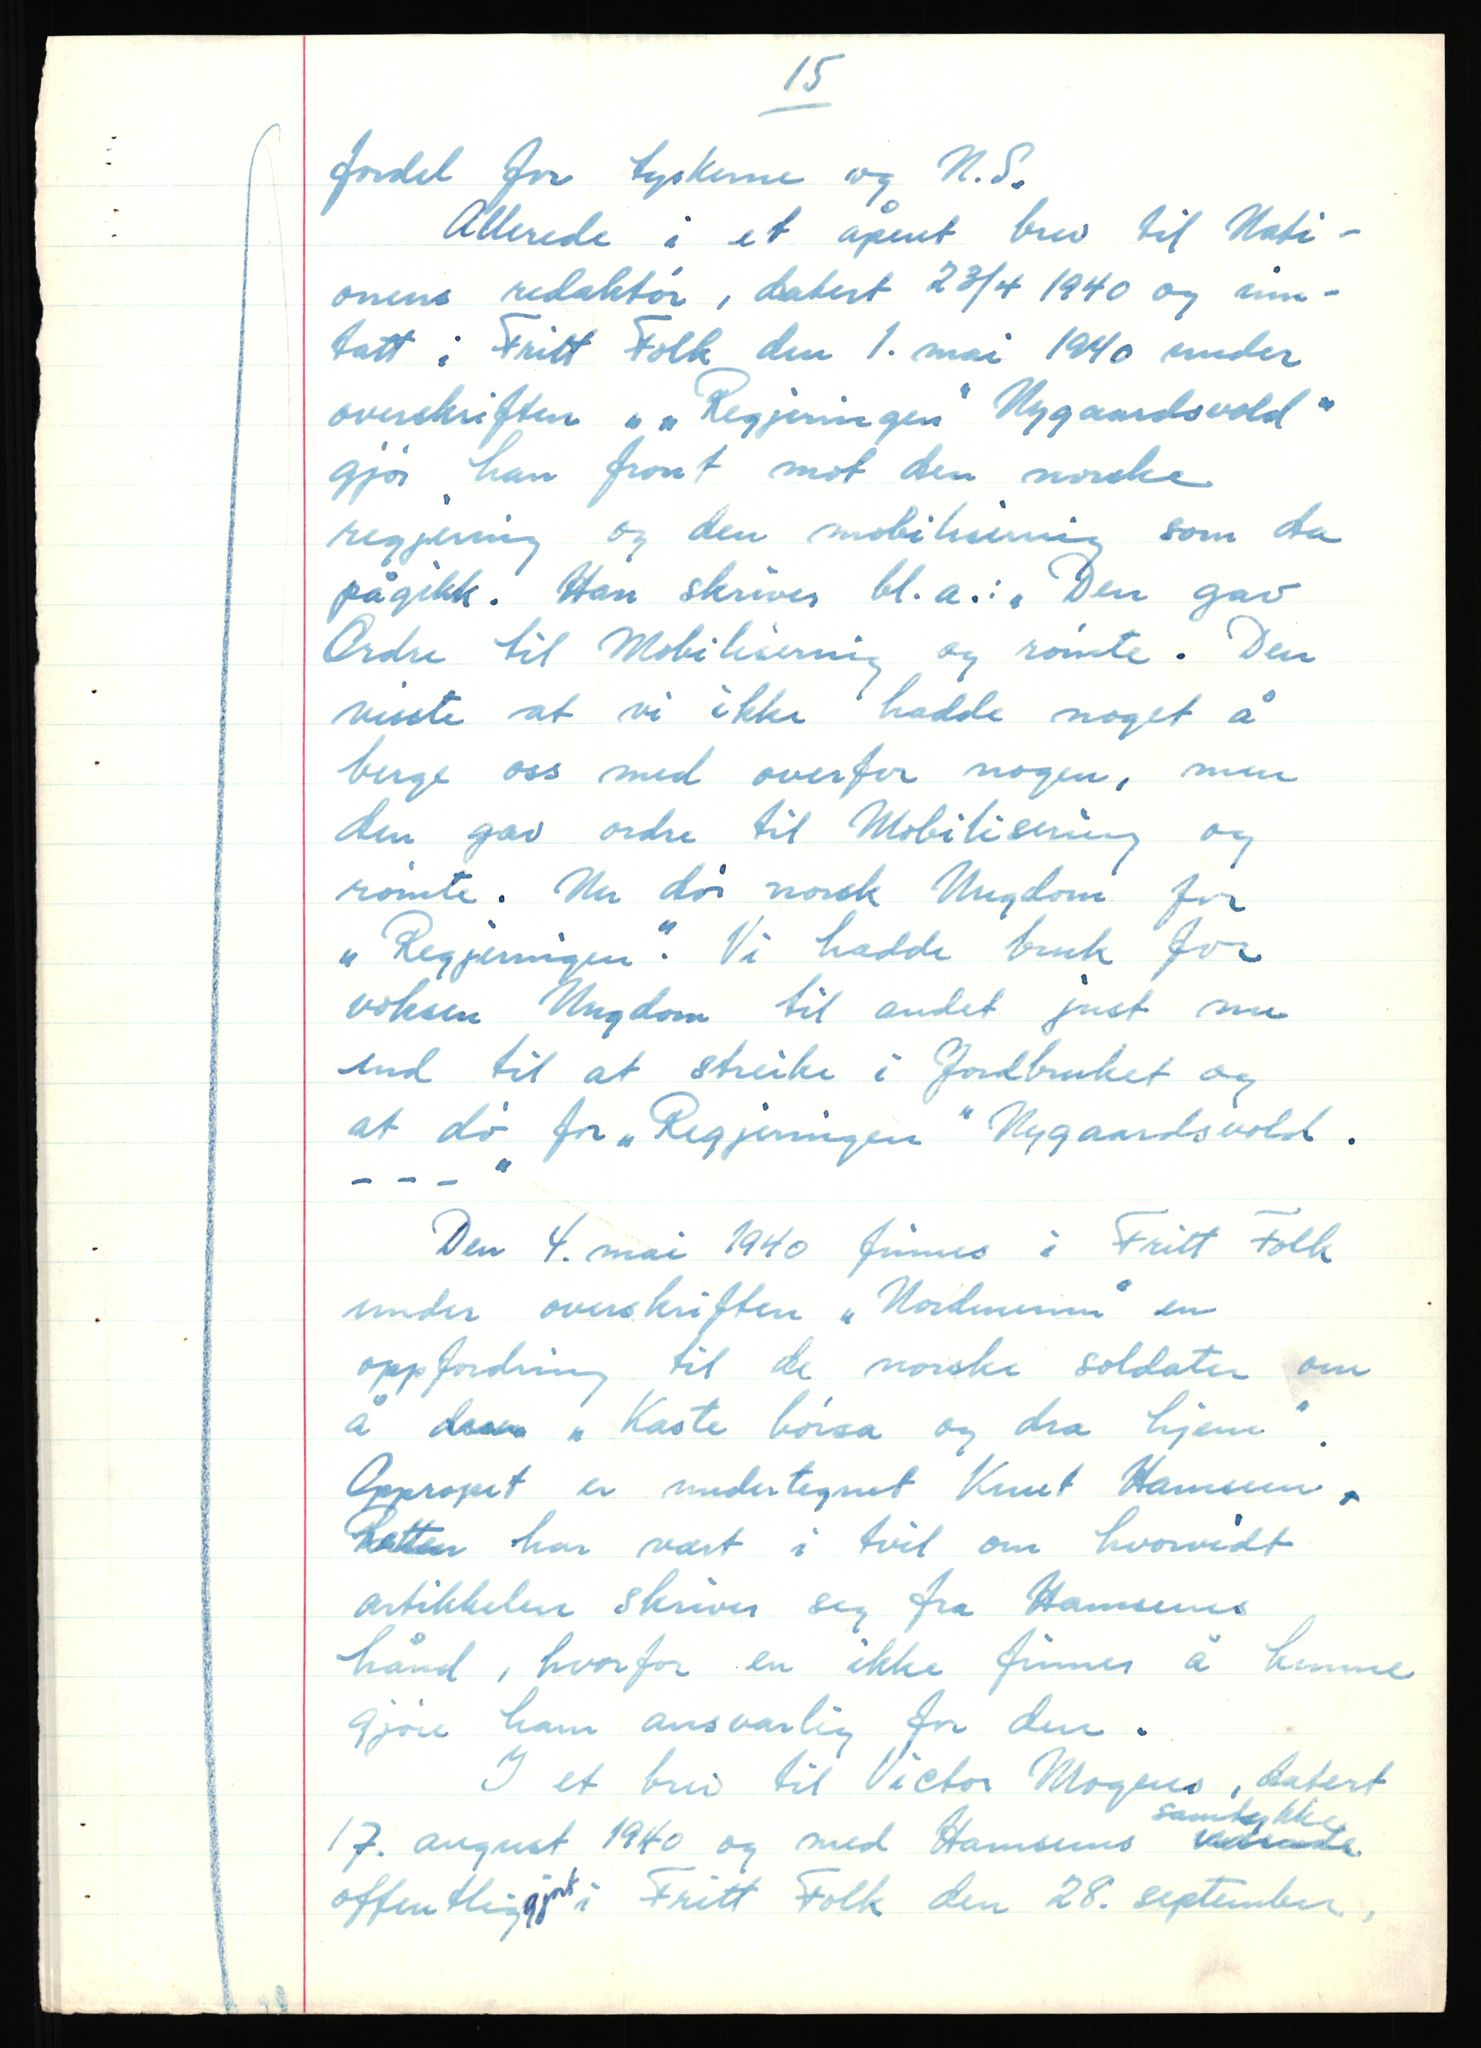 15
fordel for tyskerne og N.S.
Allerede i et åpent brev til Nati-
onens redaktör, datert 23/4 1940 og inn-
tatt i Fritt Folk den 1. mai 1940 under
overskriften „„Regjeringen" Nygaardsvold"
gjör han front mot den norske
regjering og den mobilisering som da
pågikk. Han skriver bl.a.: „Den gav
Ordre til Mobilisering og römte. Den
visste at vi ikke hadde noget å
berge oss med overfor nogen, men
den gav ordre til Mobilisering og
römte. Nu dör norsk Ungdom for
„Regjeringen". Vi hadde bruk for
voksen Ungdom til andet just nu
end til at streike i Jordbruket og
at dö for „Regjeringen" Nygaardsvold.
- - - "
Den 4. mai 1940 finnes i Fritt Folk
under overskriften „Nordmenn" en
oppfordring til de norske soldater om
å „Kaste börsa og dra hjem".
Oppropet er undertegnet Knut Hamsun.
Retten har vært i tvil om hvorvidt
artikkelen skriver seg fra Hamsuns
hånd, hvorfor en ikke finner å kunne
gjöre ham ansvarlig for den.
I et brev til Victor Mogens, datert
17. august 1940 og med Hamsuns samtykke
offentliggjort i Fritt Folk den 28. september,